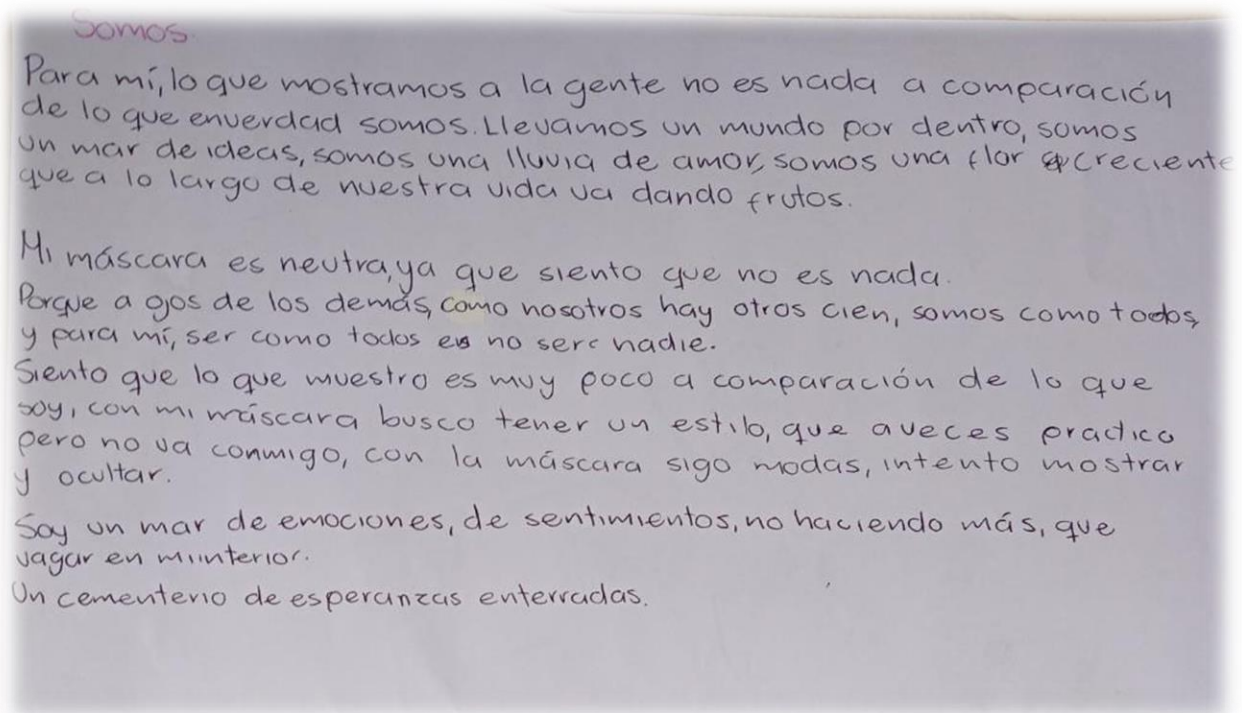 Somos.
Para mí, lo que mostramos a la gente no es nada a comparación
de lo que enverdad somos. Llevamos un mundo por dentro, somos
un mar de ideas, somos una lluvia de amor, somos una flor creciente
que a lo largo de nuestra vida va dando frutos.
Mi máscara es neutra, ya que siento que no es nada.
Porque a ojos de los demás, como nosotros hay otros cien, somos como todos,
y para mí, ser como todos es no ser nadie.
Siento que lo que muestro es muy poco a comparación de lo que
soy, con mi máscara busco tener un estilo, que aveces practico
pero no va conmigo, con la máscara sigo modas, intento mostrar
y ocultar.
Soy un mar de emociones, de sentimientos, no haciendo más, que
vagar en mi interior.
Un cementerio de esperanzas enterradas.